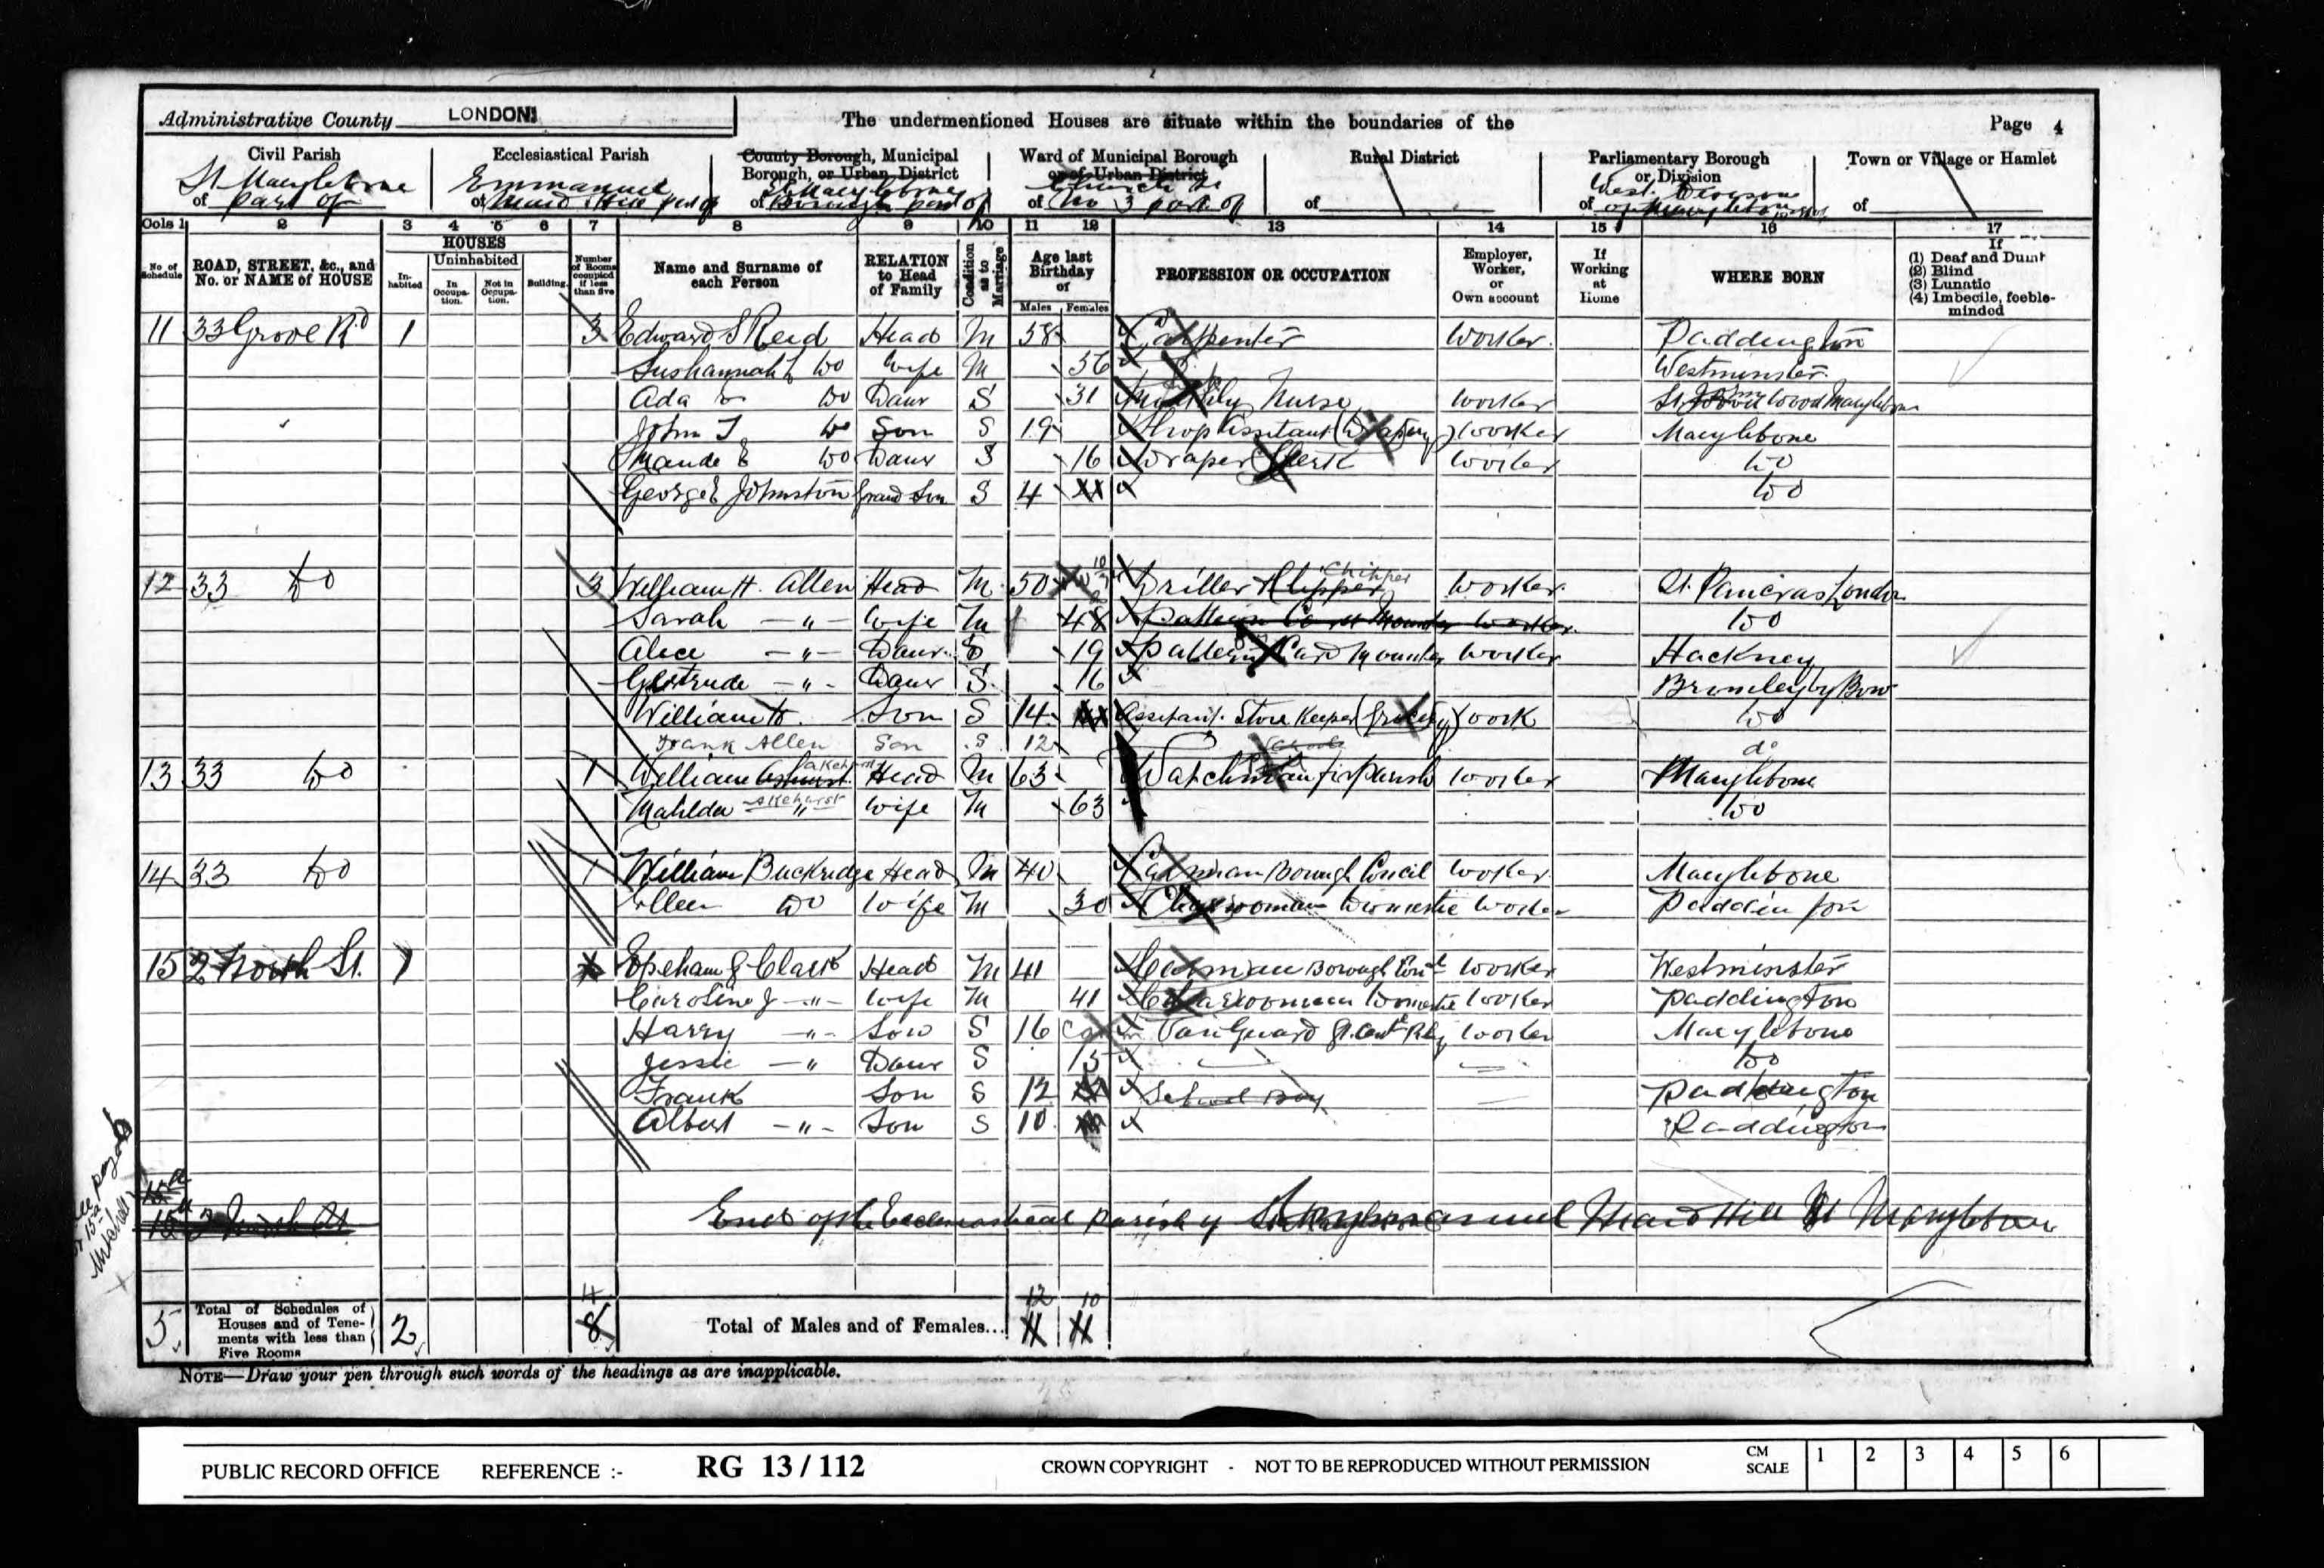 Administrative County LONDON
The undermentioned Houses are situate within the boundaries of the
Page 4
Civil Parish
St. Marylebone
of part of
Ecclesiastical Parish
Emmanuel
of Maid Hill part of
County Borough, Municipal
Borough, or Urban District
St. Marylebone
of Borough part of
Ward of Municipal Borough
or of Urban District
Church St
of No 3 part of
Rural District
of
Parliamentary Borough
or Division
West Division
of of Marylebone part of
Town or Village or Hamlet
of
Cols 1 2 3 4 5 6 7 8 9 10 11 12 13 14 15 16 17
No of Schedule
ROAD, STREET, &c., and
No. or NAME of HOUSE
HOUSES
Inhabited
Uninhabited
In Occupation.
Not in Occupation.
Building.
Number of Rooms occupied if less than five
Name and Surname of
each Person
RELATION
to Head
of Family
Condition as to Marriage
Age last
Birthday
of
Males Females
PROFESSION OR OCCUPATION
Employer,
Worker,
or
Own account
If
Working
at
Home
WHERE BORN
If
(1) Deaf and Dumb
(2) Blind
(3) Lunatic
(4) Imbecile, feeble-
minded
11 33 Grove Rd 1 3 Edward S Reed Head M 58 Carpenter Worker Paddington
Sushannah L Do Wife M 56 Westminster
Ada Do Daur S 31 Monthly Nurse Worker St. Johns Wood Marylebone
John T Do Son S 19 Shop Assitant (Drapery) Worker Marylebone
Maude E Do Daur S 16 Draper Clerk Worker Do
George E Johnston Grand Son S 4 Do
12 33 Do 3 William H. Allen Head M 50 Driller & Chipper Worker St. Pancras London
Sarah -"- Wife M 48 Pattern Card Mounter Worker Do
Alice -"- Daur S 19 Pattern Card Mounter Worker Hackney
Gertrude -"- Daur S 16 Bromley by Bow
William H. Son S 14 Assitant Store Keeper (Grocery) Work Do
Frank Allen Son S 12 School do
13 33 Do 1 William Akehurst Head M 63 Watchman for Parish Worker Marylebone
Mahilda Akehurst " Wife M 63 Do
14 33 Do 1 William Buckridge Head M 40 Carman Borough Concil Worker Marylebone
Elleen Do Wife M 30 Charwoman Domestic Worker Paddington
15 2 North St. 1 Epeham G Clark Head M 41 Carman Borough Worker Westminster
Caroline J -"- Wife M 41 Charwoman Domestic Worker Paddington
Harry -"- Son S 16 Van Guard Gt. Cent Rly Worker Marylebone
Jessie -" Daur S 15 Do
Frank Son S 12 School Boy Paddington
Albert -"- Son S 10 Paddington
15a
15a 2 North St
End of the Ecclesiastical Parish of Emmanuel Maid Hill St Marylebone
4 12 10
5 Total of Schedules of
Houses and of Tene-
ments with less than
Five Rooms
2 8 Total of Males and of Females... 11 11
NOTE—Draw your pen through such words of the headings as are inapplicable.
PUBLIC RECORD OFFICE REFERENCE :- RG 13 / 112 CROWN COPYRIGHT - NOT TO BE REPRODUCED WITHOUT PERMISSION CM SCALE 1 2 3 4 5 6